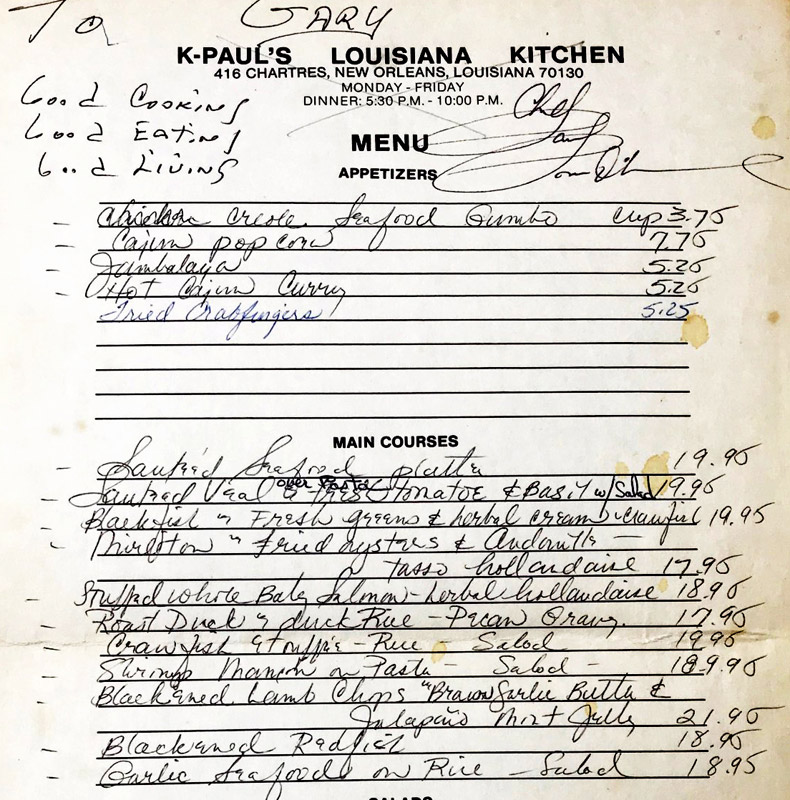 To GARY
K-PAUL'S LOUISIANA KITCHEN
416 CHARTRES, NEW ORLEANS, LOUISIANA 70130
MONDAY - FRIDAY
DINNER: 5:30 P.M. - 10:00 P.M.
Good Cooking
Good Eating
Good Living
Chef
MENU
APPETIZERS
Creole Seafood Gumbo cup 3.75
Cajun popcorn 7.75
Jambalaya 5.25
Hot Cajun Curry 5.25
Fried Crabfingers 5.25
MAIN COURSES
Sauteéd Seafood platter 19.95
Sauteed Veal over Pasta Fresh tomatoe & Basil w/ Salad 19.95
Blackfish Fresh greens & herbal cream - crawfish 19.95
Mirliton Fried oysters & Andouille —
Tasso hollandaise 17.95
Stuffed whole Baby Salmon - herbal hollandaise 18.95
Roast Duck duck Rice - Pecan Gravy 17.95
Crawfish Etouffée - Rice - Salad 19.95
Shrimp on Pasta - Salad -
Blackened Lamb Chops Brown Garlic Butter &
Jalapeño Mint Jelly 21.95
Blackened Redfish 18.95
Garlic Seafood on Rice - Salad 18.95
SALADS